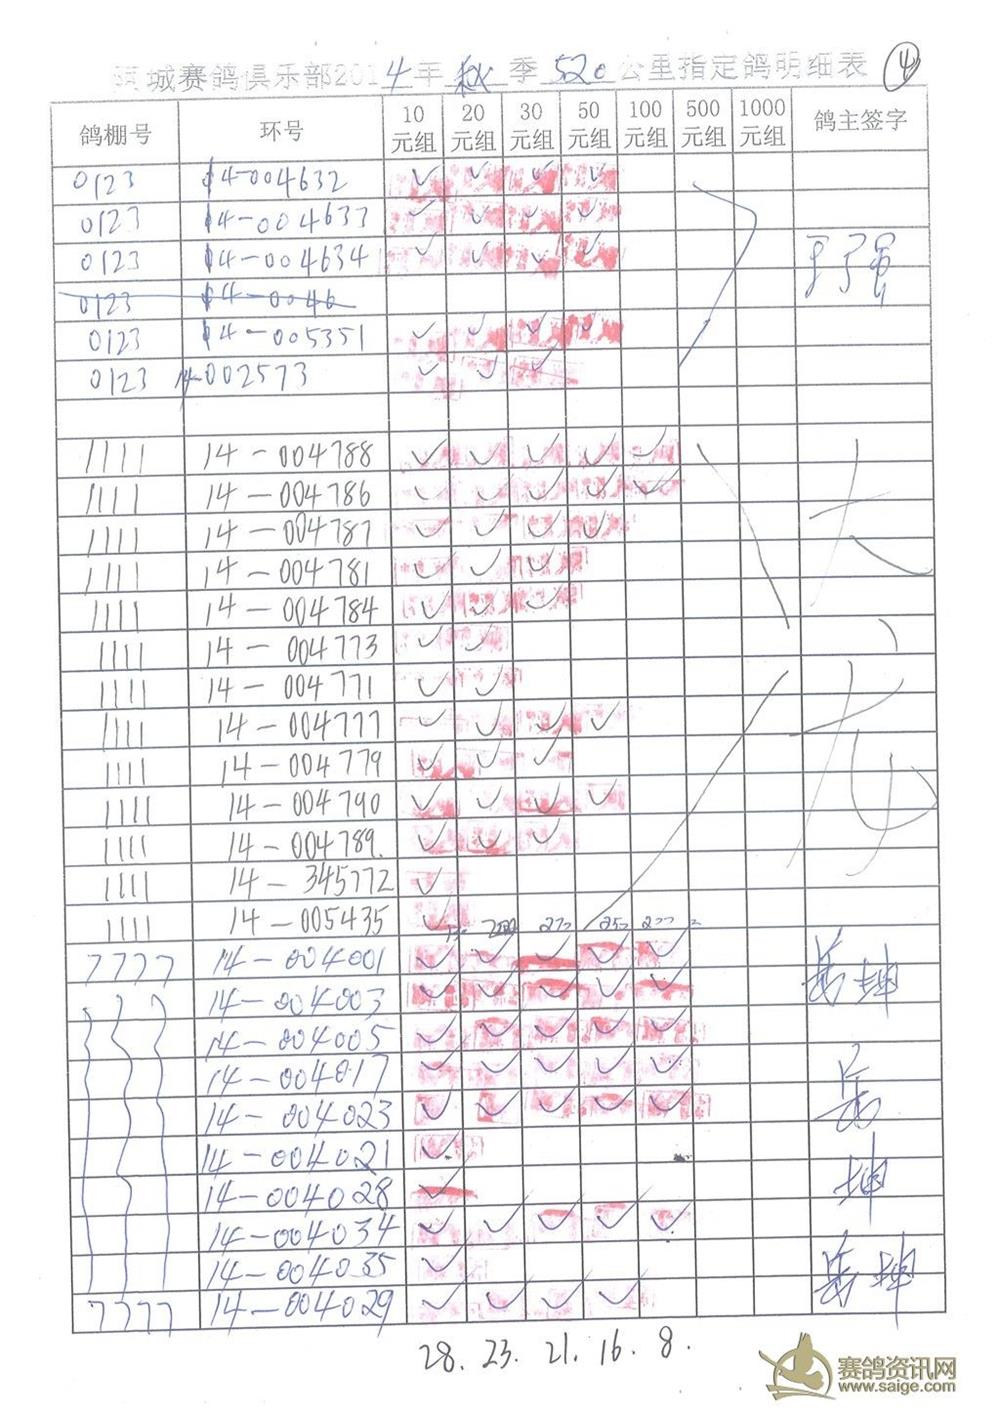 城赛鸽俱乐部2014年秋季520公里指定鸽明细表 4
鸽棚号 环号 10元组 20元组 30元组 50元组 100元组 500元组 1000元组 鸽主签字
0123 14-004632 ✓ ✓ ✓ ✓
0123 14-004633 ✓ ✓ ✓ ✓
0123 14-004634 ✓ ✓ ✓ ✓
0123 14-0046
0123 14-005351 ✓ ✓ ✓ ✓
0123 14-002573 ✓ ✓ ✓
1111 14-004788 ✓ ✓ ✓ ✓ ✓
1111 14-004786 ✓ ✓ ✓ ✓ ✓
1111 14-004787 ✓ ✓ ✓ ✓
1111 14-004781 ✓ ✓ ✓
1111 14-004784 ✓ ✓ ✓
1111 14-004773 ✓ ✓
1111 14-004771 ✓ ✓
1111 14-004777 ✓ ✓ ✓ ✓
1111 14-004779 ✓ ✓ ✓
1111 14-004790 ✓ ✓ ✓ ✓
1111 14-004789. ✓ ✓ ✓
1111 14-345772 ✓
1111 14-005435 ✓
7777 14-004001 ✓ ✓ ✓ ✓ ✓ 岳坤
14-004003 ✓ ✓ ✓ ✓ ✓
14-004005 ✓ ✓ ✓ ✓ ✓
14-004017 ✓ ✓ ✓ ✓ ✓
14-004023 ✓ ✓ ✓ ✓ ✓ 岳
14-004021 ✓
14-004028 ✓ 坤
14-004034 ✓ ✓ ✓ ✓ ✓
14-004035 ✓ 岳坤
7777 14-004029 ✓ ✓ ✓ ✓
28. 23. 21. 16. 8.
赛鸽资讯网
www.saige.com